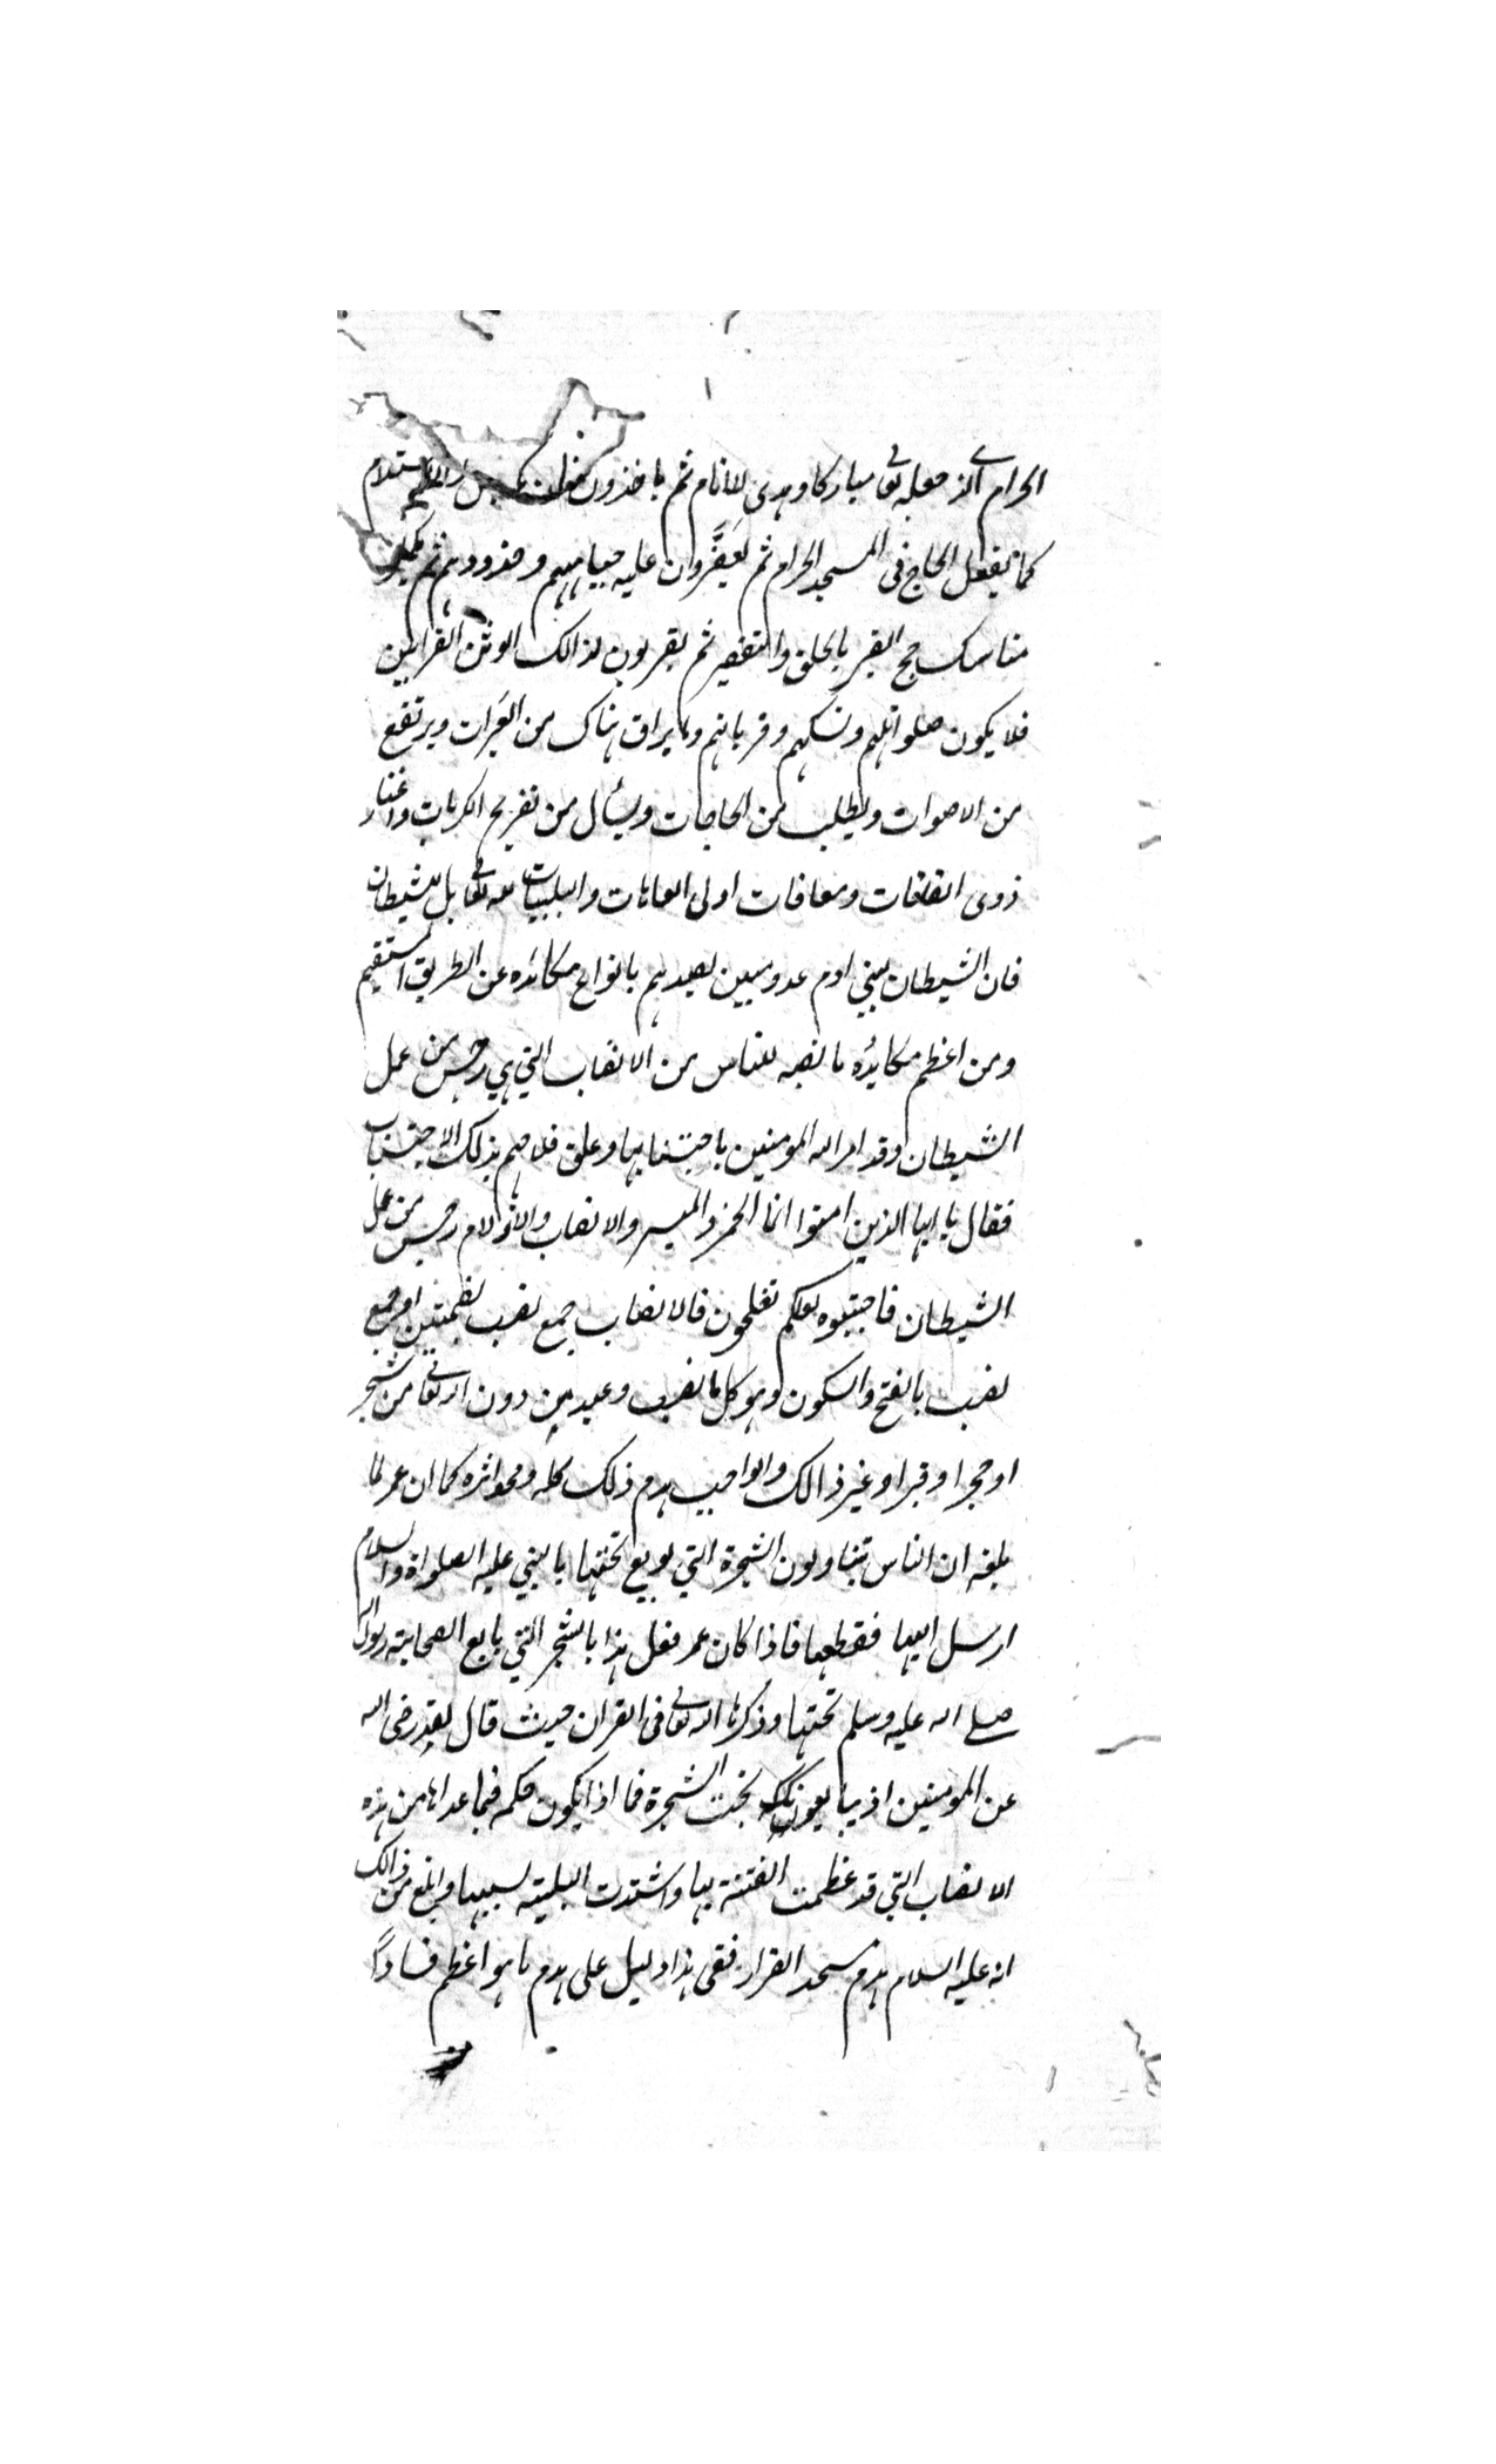 الحرام الذ جعله تعا مباركا وهدى للانام ثم ياخذون فى التقبيل والاستلام
كما يفعل الحاج فى المسجد الحرام ثم يعفّرون عليه جباههم وخدودهم ثم يكملون
مناسك حج القبر بالحلق والتقصير ثم يقربون لذالك الوثن القرابين
فلا يكون صلواتهم ونسكهم وقربانهم وما يراق هناك من العبرات ويرتفع
من الاصوات ويطلب من الحاجات ويسأل من تفريج الكربات واغناء
ذوى الفاقات ومعافات اولى العاهات والبليات لله تعا بل للشيطان
فان الشيطان لبني ادم عدو مبين يصيدهم بانواع مكائده عن الطريق المستقيم
ومن اعظم مكايده ما نصبه للناس من الانصاب التي هي رجس من عمل
الشيطان وقد امر الله المومنين باجتنابها وعلق فلاحهم بذلك الاجتناب
فقال يا ايها الذين امنوا انما الخمر والميسر والانصاب والازلام رجس من عمل
الشيطان فاجتنبوه لعلكم تفلحون فالانصاب جمع نصب بضمتين او جمع
نصب بالفتح والسكون وهو كل ما نصب وعبد من دون الله تعا من شجر
او حجر او قبر او غير ذالك والواجب هدم ذلك كله ومحو اثره كما ان عمر لما
بلغه ان الناس تتناوبون الشجرة التي بويع تحتها بالنبي عليه الصلواة والسلام
ارسل اليها فقطعها فاذا كان عمر فعل هذا بالشجر التي بايع الصحابة رسول الله
صلى الله عليه وسلم تحتها وذكرها الله تعا فى القران حيث قال لقد رضى الله
عن المومنين اذ يبايعونك تحت الشجرة فما ذا يكون حكمه فيما عداها من هذه
الانصاب التي قد عظمت الفتنة بها واشتدت البلية بسببها وابلغ من ذالك
انه عليه السلام هدم مسجد الضرار ففى هذا دليل على هدم ما هو اعظم فسادًا